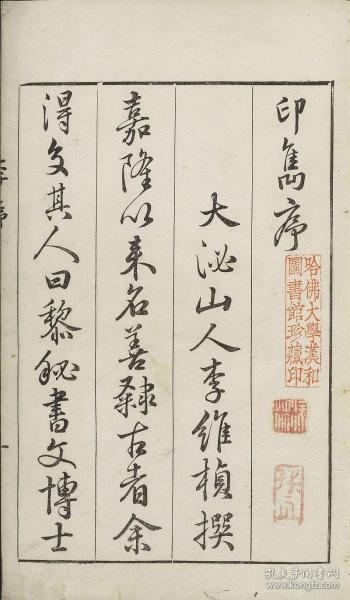 印雋序
哈佛大學漢和
圖書館珍藏印
大泌山人李維楨撰
嘉隆以來名善隸古者余
得交其人曰黎秘書文博士
孔夫子旧书网